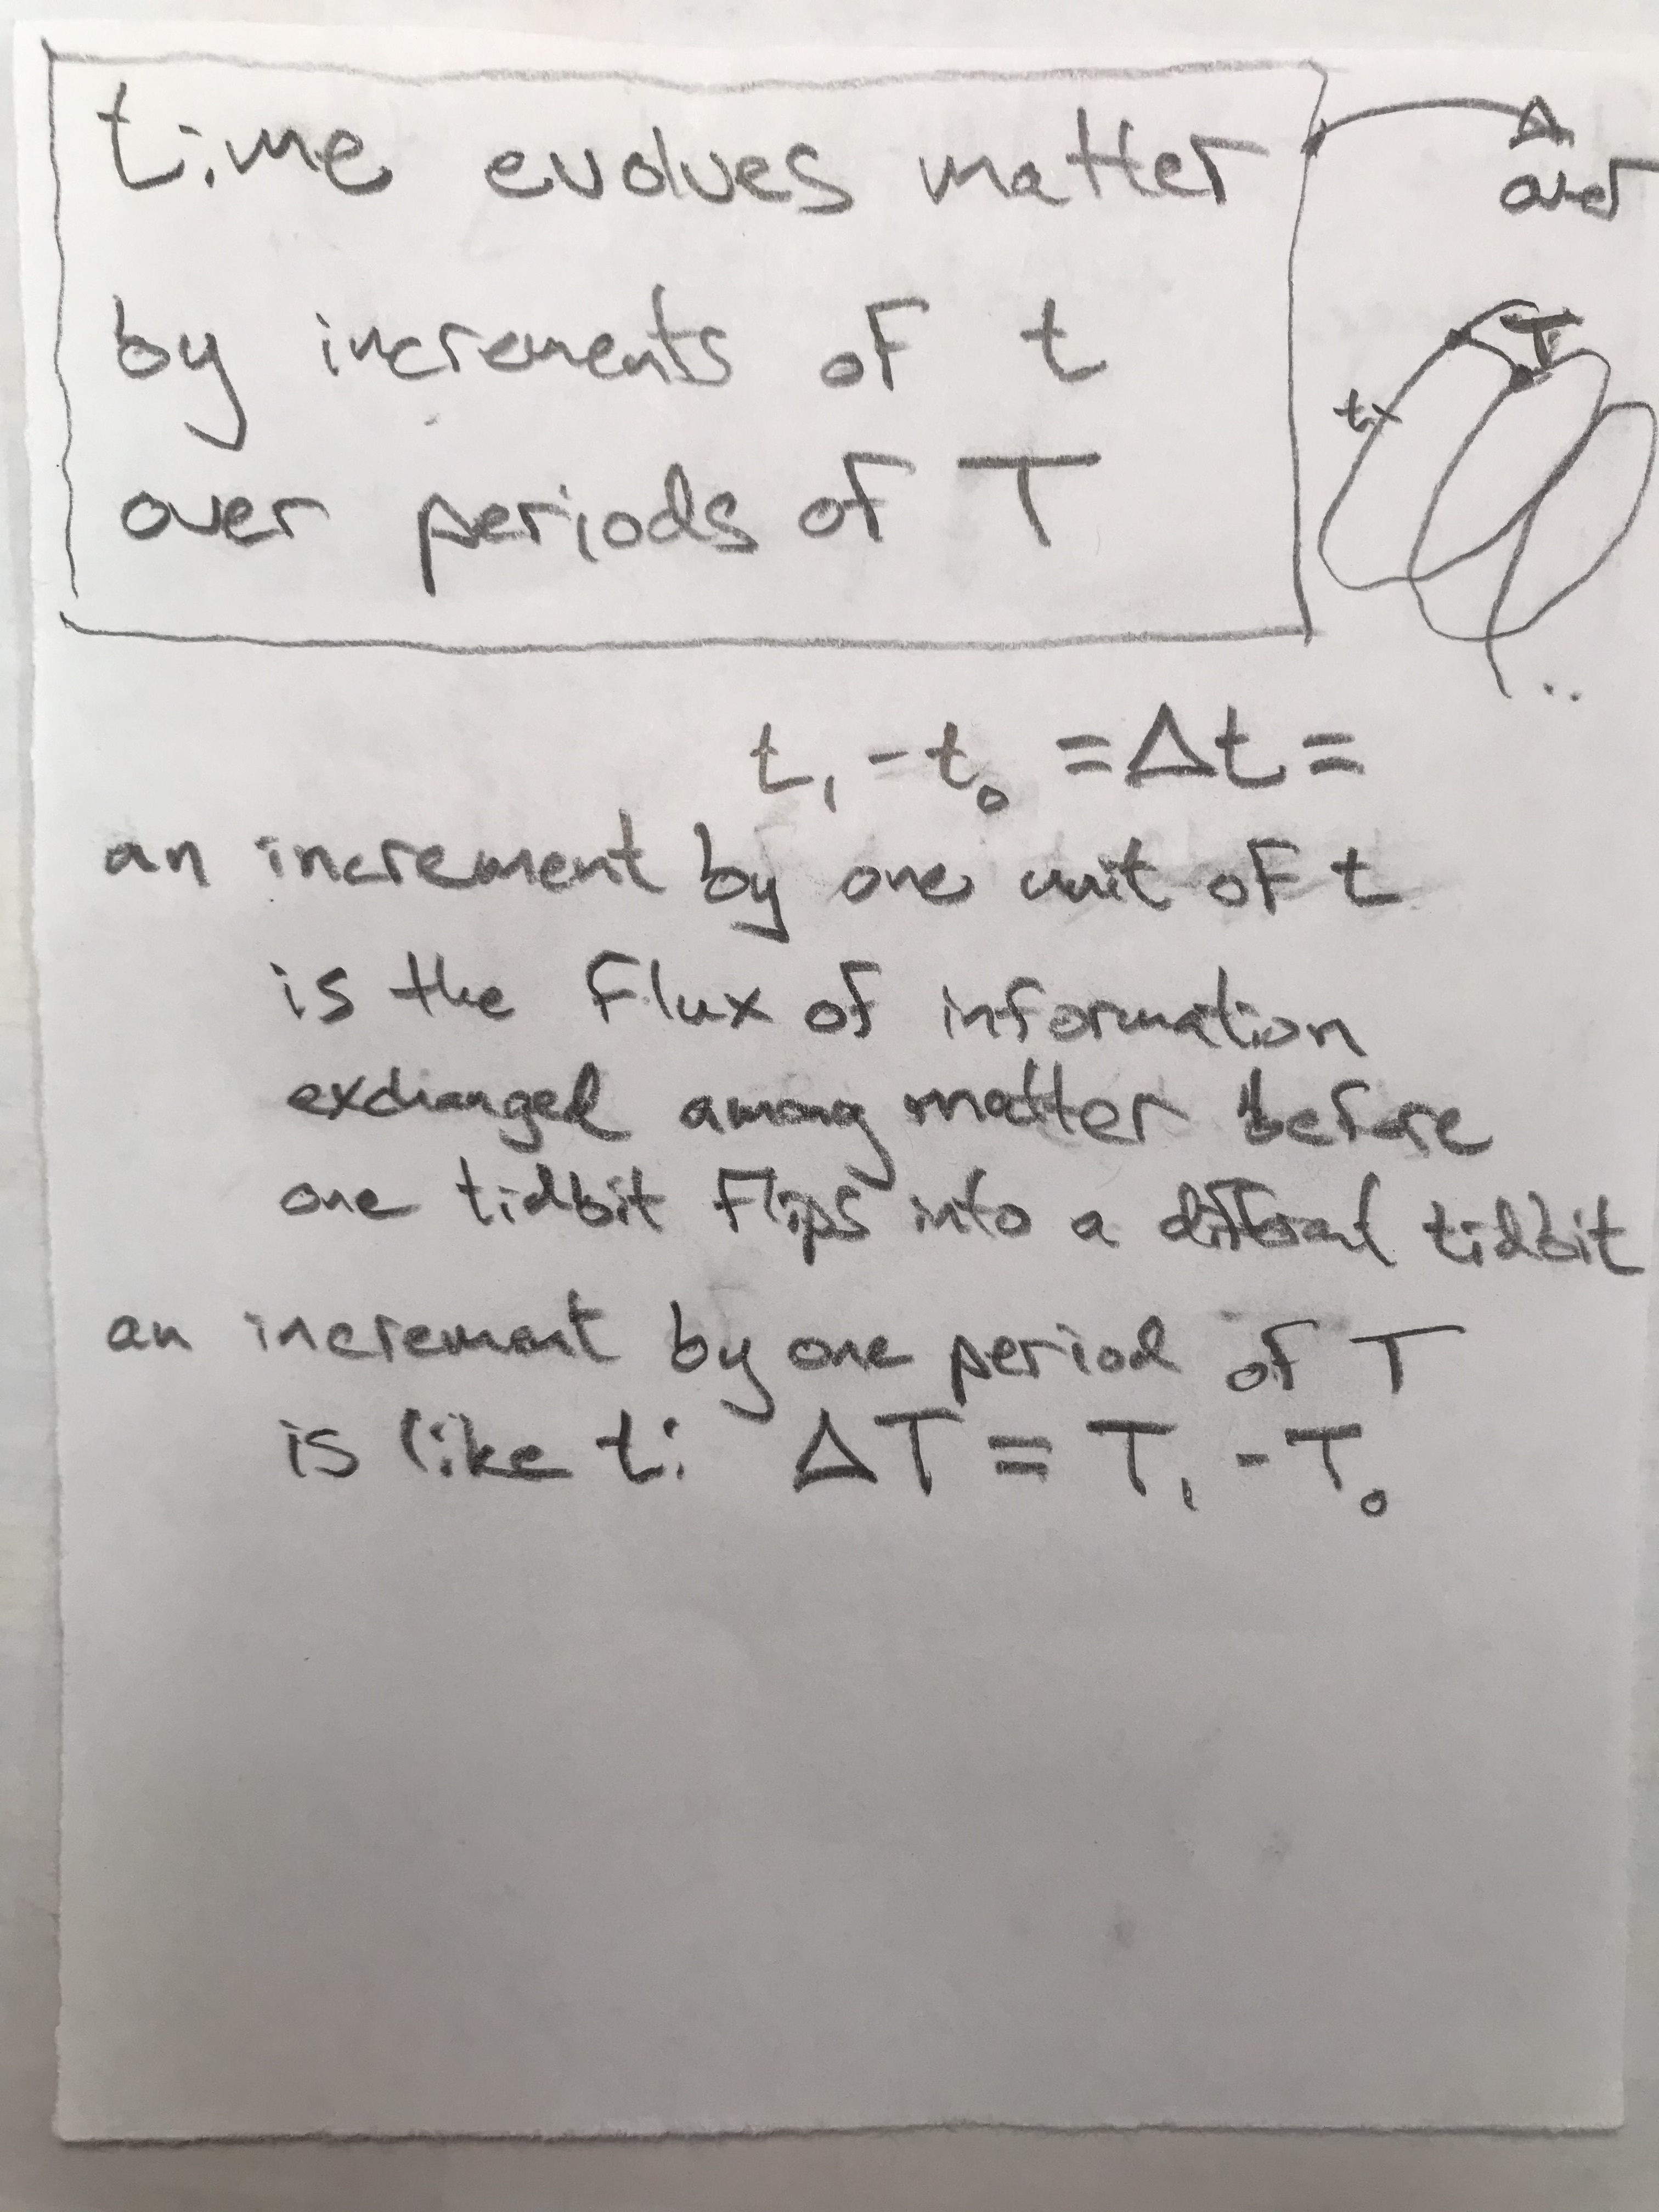 time evolves matter
by increments of t
over periods of T
Δ
over
T
t
t₁ - t₀ = Δt =
an increment by one unit of t
is the flux of information
exchanged among matter before
one tidbit flips into a different tidbit
an increment by one period of T
is like t: ΔT = T₁ - T₀